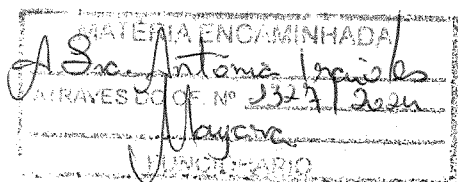 MATÉRIA ENCAMINHADA
A Sra. Antônia
ATRAVÉS DO OF. Nº 1327/2024
Mayara
FUNCIONÁRIO